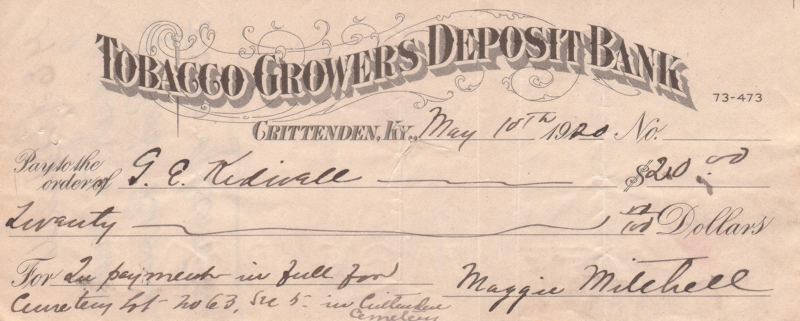 TOBACCO GROWERS DEPOSIT BANK
73-473
CRITTENDEN, KY., May 10th 1920 No.
Pay to the order of G. E. Kidwell $20.00
Twenty no/100 Dollars
For In payment in full for Maggie Mitchell
Cemetery Lot no 63, Sec 5 in Crittenden
Cemetery